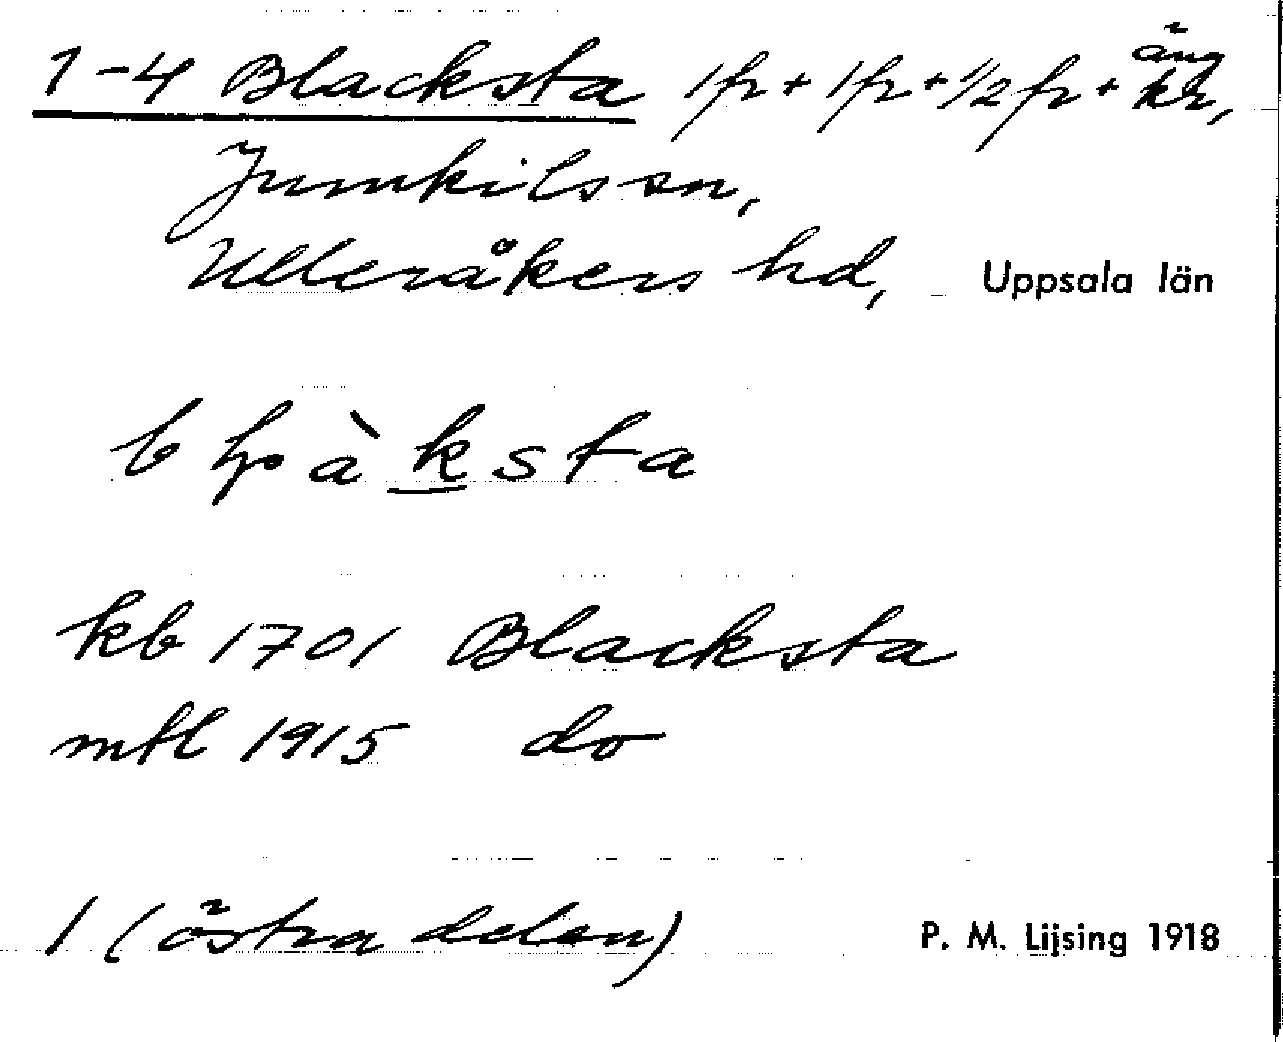 1-4 Blacksta 1 fr + 1 fr + 1/2 fr + äng kr,
Jumkils sn,
Ulleråkers hd, Uppsala län
kb 1701 Blacksta
mtl 1915 do
1 (östra delen) P. M. Lijsing 1918